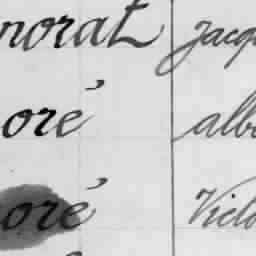 norat Jacqu
oré albe
oré Victo